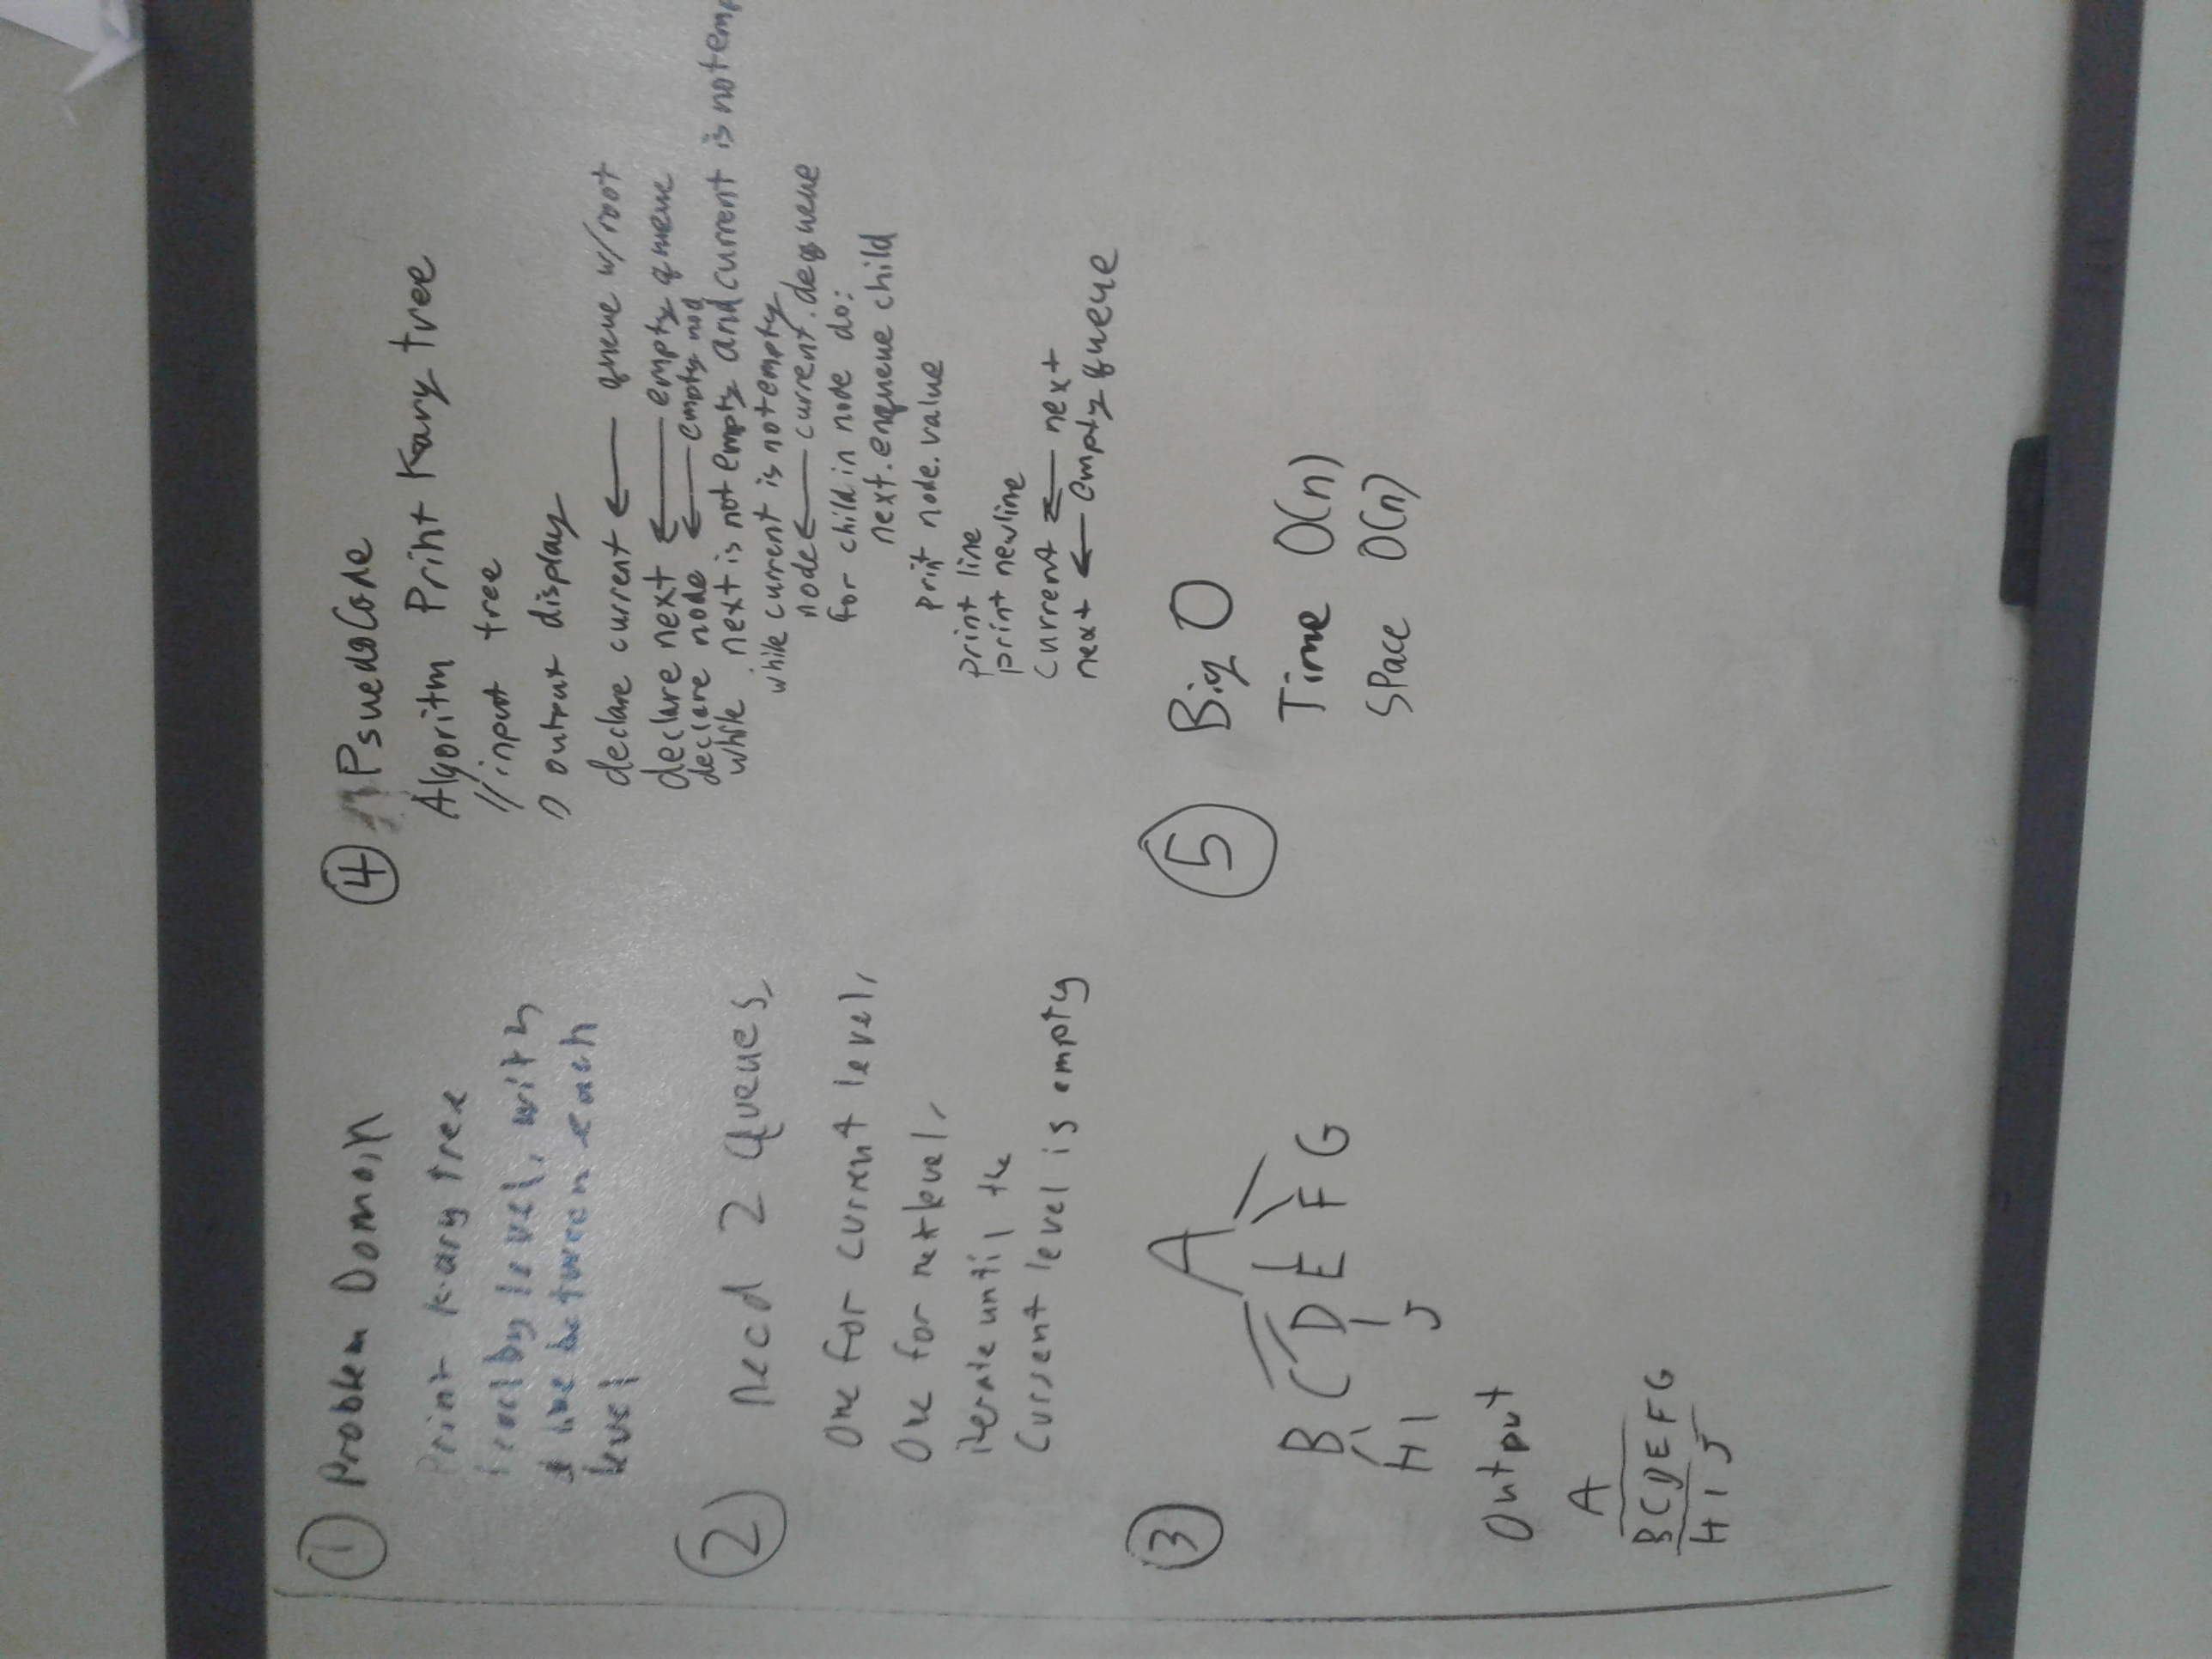 ① Problem Domain
Print k-ary tree
level by level, with
line between each
level
② need 2 Queues,
One for current level,
One for next level,
iterate until the
Current level is empty
③
A
B C D E F G
H I J
Output
A
B C D E F G
H I J
④ PsuedoCode
Algoritm Print Kary tree
// input tree
output display
declare current ← queue w/root
declare next ← empty queue
declare node ← empty nod
while next is not empty and current is not emp
while current is not empty
node ← current.dequeue
for child in node do:
next.enqueue child
print node.value
print line
print newline
current ← next
next ← empty queue
⑤ Big O
Time O(n)
Space O(n)